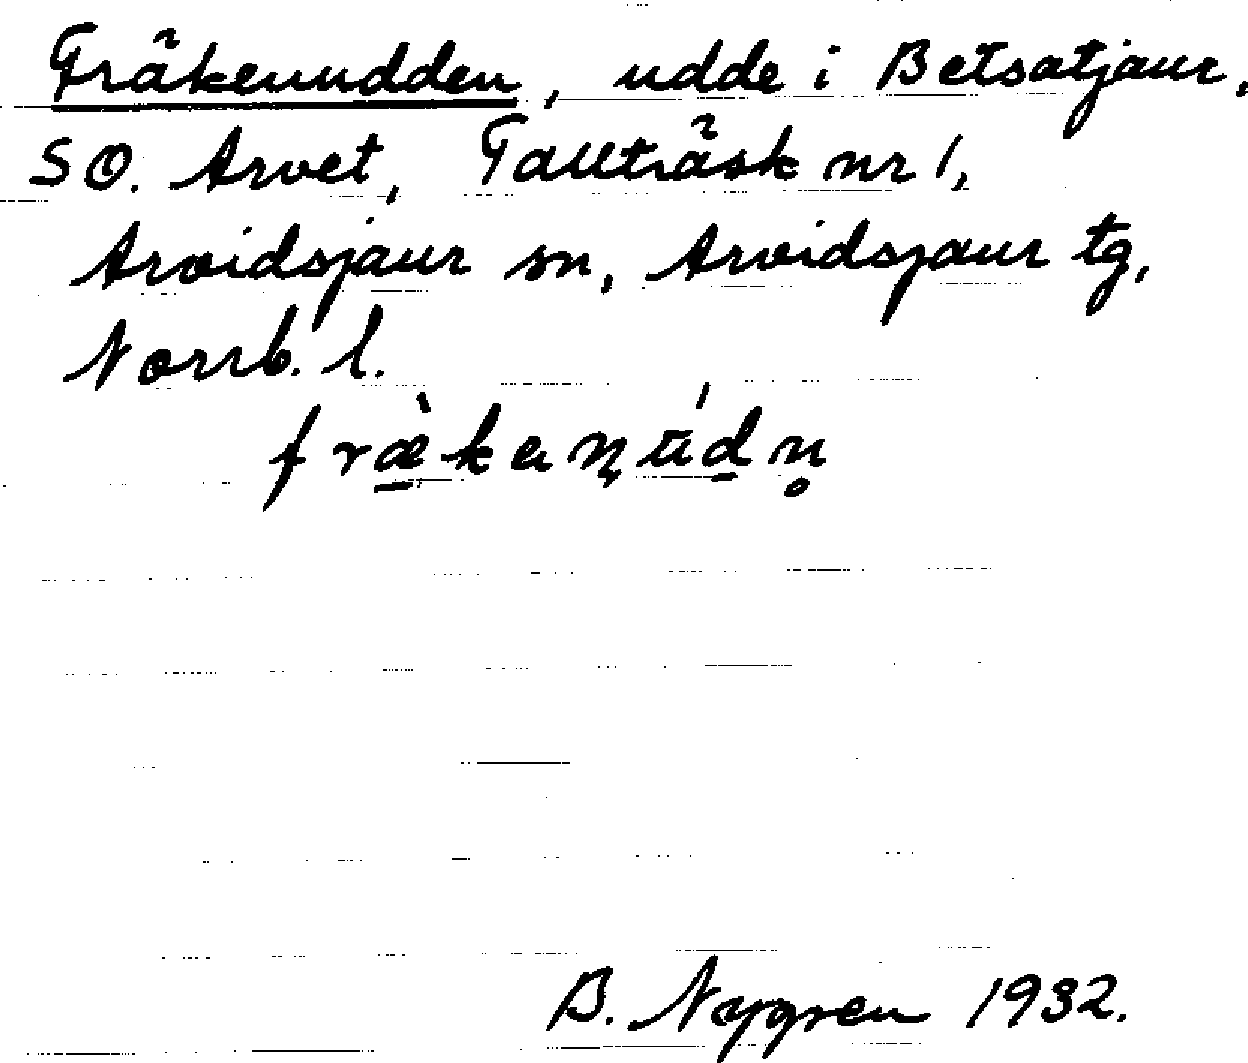 Fräkenudden, udde i Betsatjaur,
SO. Arvet, Tallträsk nr 1,
Arvidsjaur sn, Arvidsjaur tg,
Norrb. l.
B. Nygren 1932.